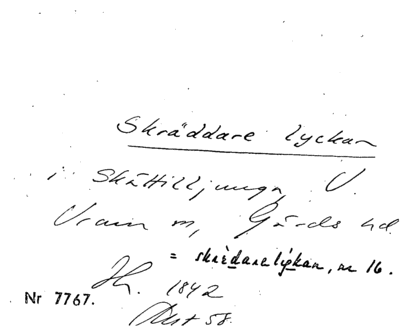 Skräddare lyckan
i Skättilljunga, V.
Vram sn, Gärds hd.
= skrèdarelýkan, nr 16.
1842
Nr 7767.
58.